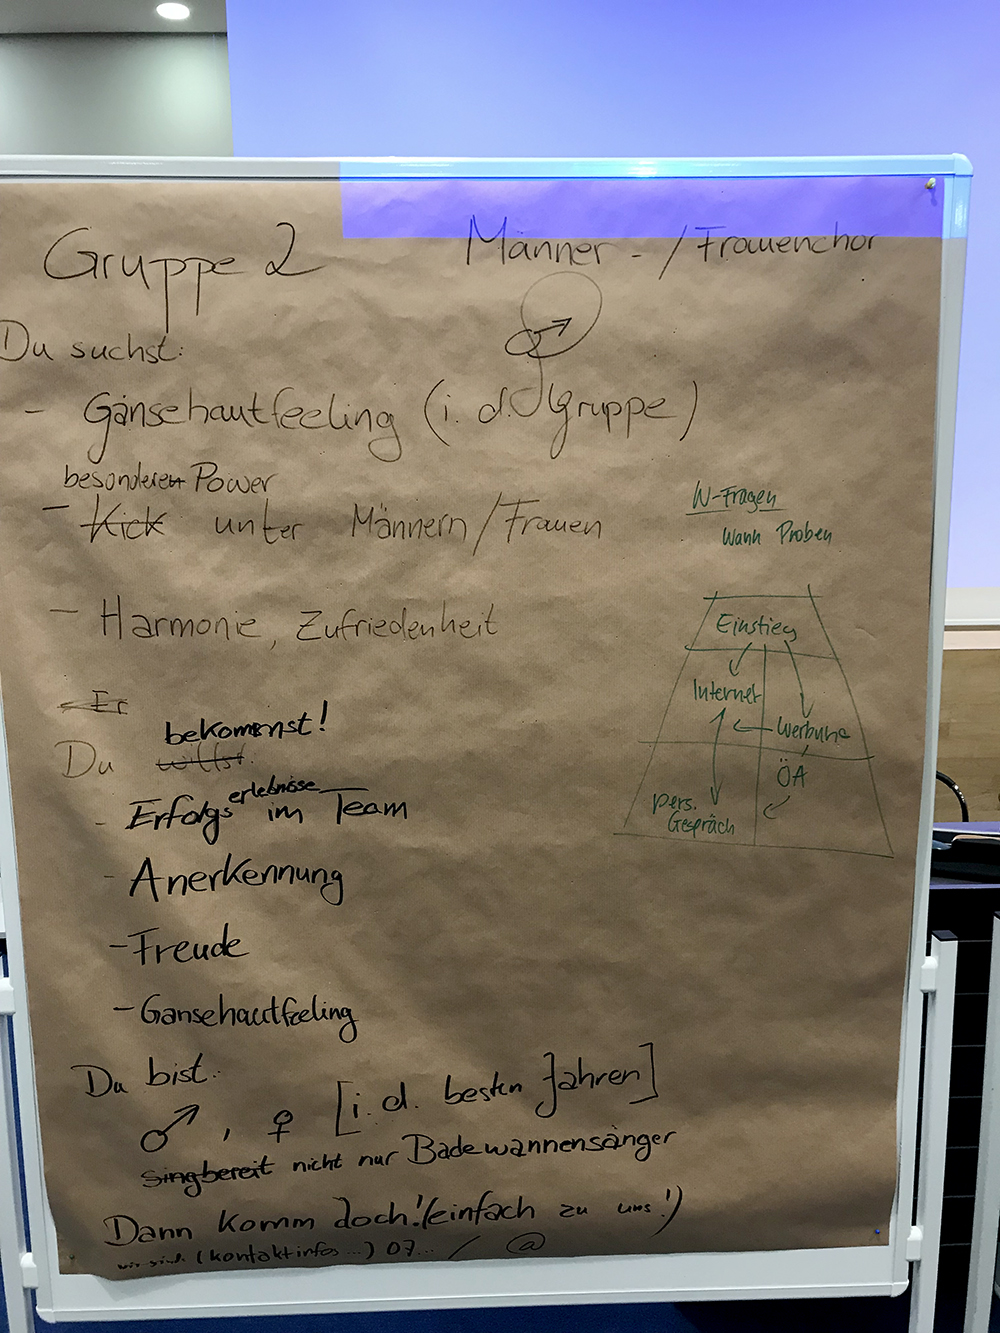 Gruppe 2
Männer - / Frauenchor
Du suchst:
- Gänsehautfeeling (i. d. Gruppe)
besonderen Power
- Kick unter Männern / Frauen
- Harmonie, Zufriedenheit
Er
bekommst!
Du willst:
erlebnisse
- Erfolgs im Team
- Anerkennung
- Freude
- Gänsehautfeeling
Du bist:
♂, ♀ [i. d. besten Jahren]
singbereit nicht nur Badewannensänger
Dann komm doch! (einfach zu uns!)
wir sind: (kontaktinfos ...) 07... / @
W-Fragen
Wann Proben
Einstieg
Internet
Werbung
ÖA
pers.
Gespräch